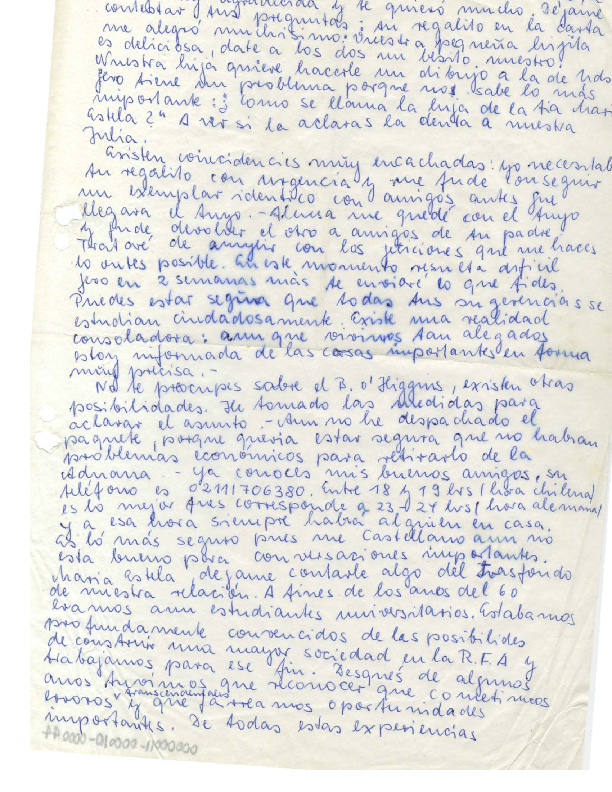 contestar y tus preguntas: tu regalito en la carta
me alegró muchísimo: vuestra pequeña hijita
es deliciosa, date a los dos un besito nuestro!
Nuestra hija quiere hacerle un dibujo a la de Uds
pero tiene un problema porque no sabe lo más
importante: ¿como se llama la hija de la tía Mari
Estela?" A ver si la aclaras la denta a nuestra
Julia.
Existen coincidencies muy encachadas: yo necesitab
tu regalito con urgencia y me pude conseguir
un exemplar identico con amigos antes que
llegara el tuyo. - Ahora me quedé con el tuyo
y pude devolver el otro a amigos de tu padre.
Trataré de con las peticiones que me haces
lo antes posible. En este momento resulta dificil
pero en 2 semanas más te enviaré lo que pides.
Puedes estar segura que todas tus sugerencias se
estudian ciudadosamente. Existe una realidad
consoladora: aun que vivimos tan alegados
estoy informada de las cosas importantes en forma
muy precisa. -
No te preocupes sobre el B. O'Higgins, existen otras
posibilidades. He tomado las medidas para
aclarar el asunto. - Aun no he despachado el
paquete, porque queria estar segura que no habran
problemas económicos para retirarlo de la
Aduana. - Ya conoces mis buenos amigos, su
teléfono es 0211/706380. Entre 18 y 19 hrs (hora chilena)
es lo mejor pues corresponde a 23-24 hrs (hora alemana)
y a esa hora siempre habrá alguien en casa.
Es lo más seguro pues me Castellano aun no
esta bueno para conversaciones importantes.
Maria Estela, dejame contarle algo del Trasfondo
de nuestra relación. A fines de los anos del 60
eramos aun estudiantes universitarios. Estabamos
profundamente convencidos de las posibilides
de construir una mayor sociedad en la R.F.A y
trabajamos para ese fin. Después de algunos
anos tuvimos que reconocer que cometimos
errores transcendentales y que farreamos oportunidades
importantes. De todas estas experiencias